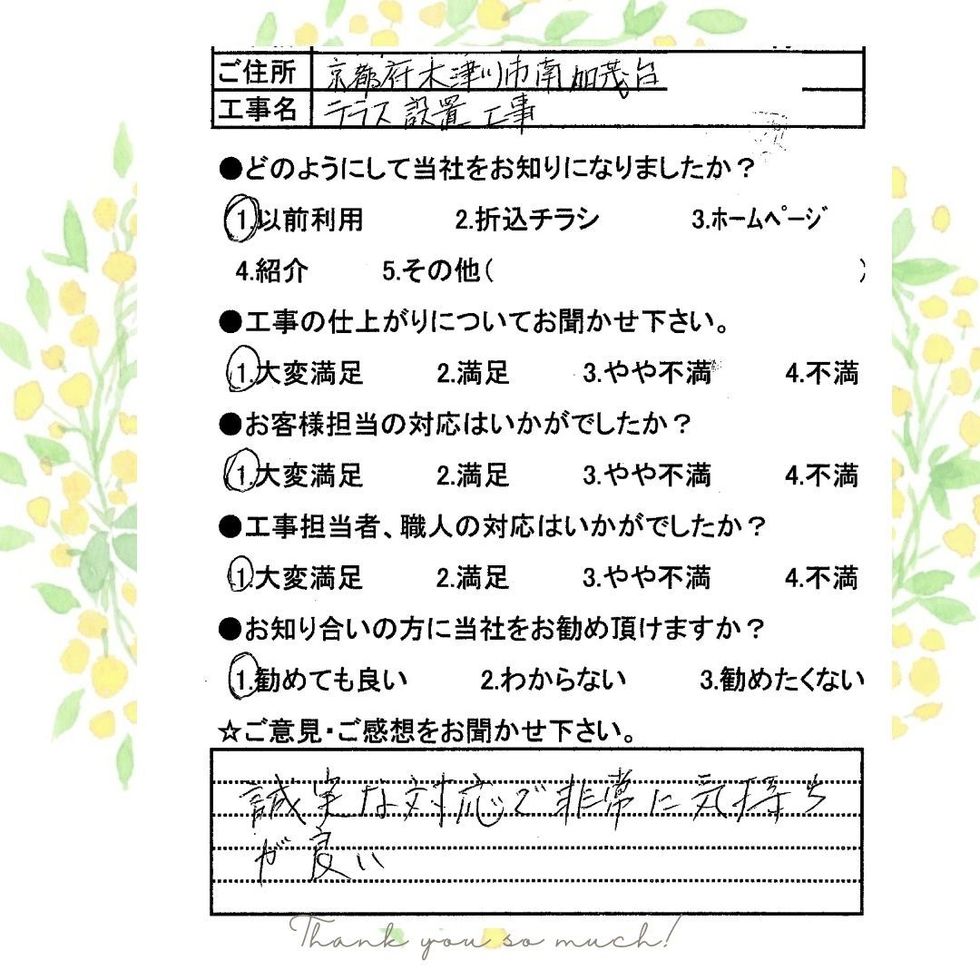 ご住所 京都府木津川市南加茂台
工事名 テラス設置工事
●どのようにして当社をお知りになりましたか？
1.以前利用 2.折込チラシ 3.ﾎｰﾑﾍﾟｰｼﾞ
4.紹介 5.その他( )
●工事の仕上がりについてお聞かせ下さい。
1.大変満足 2.満足 3.やや不満 4.不満
●お客様担当の対応はいかがでしたか？
1.大変満足 2.満足 3.やや不満 4.不満
●工事担当者、職人の対応はいかがでしたか？
1.大変満足 2.満足 3.やや不満 4.不満
●お知り合いの方に当社をお勧め頂けますか？
1.勧めても良い 2.わからない 3.勧めたくない
☆ご意見・ご感想をお聞かせ下さい。
誠実な対応で非常に気持ち
が良い
Thank you so much!